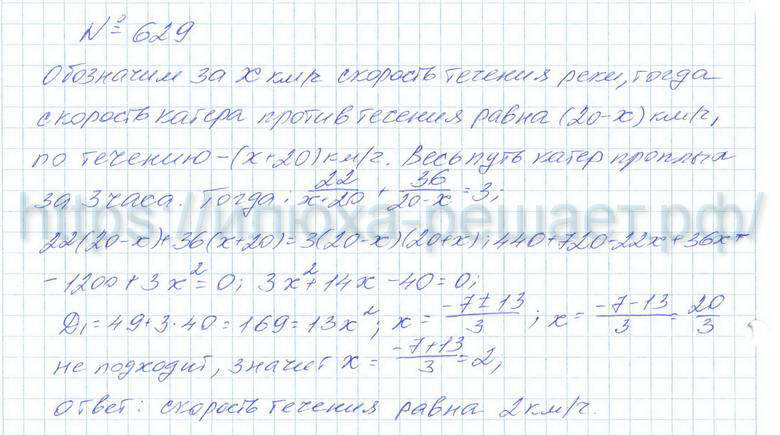 № 629
Обозначим за x км/ч скорость течения реки, тогда
скорость катера против течения равна (20-x) км/ч,
по течению – (x+20) км/ч. Весь путь катер проплыл
за 3 часа. Тогда: 22/(x+20) + 36/(20-x) = 3;
https://илюха-решает.рф/
22(20-x)+36(x+20)=3(20-x)(20+x); 440+720-22x+36x+
-1200+3x²=0; 3x²+14x-40=0;
D₁=49+3·40=169=13x²; x=(-7±13)/3; x=(-7-13)/3=20/3
не подходит, значит x=(-7+13)/3=2;
ответ: скорость течения равна 2 км/ч.